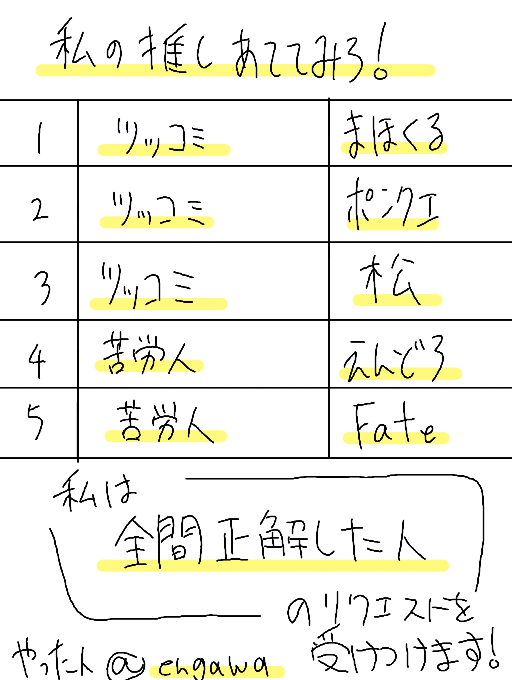 私の推しあててみろ!
1 ツッコミ まほくる
2 ツッコミ ポンクエ
3 ツッコミ 松
4 苦労人 えんどろ
5 苦労人 Fate
私は
全問正解した人
のリクエストを
受けつけます!
やった人@engawa